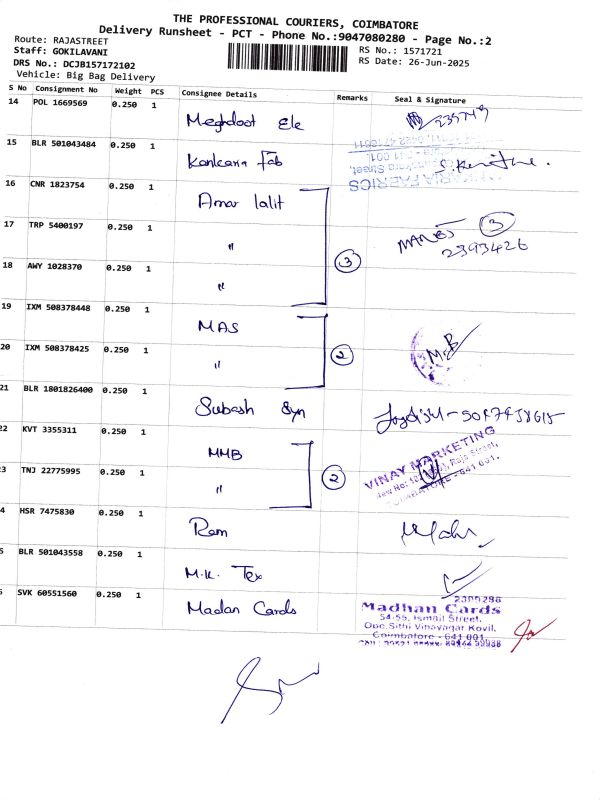 THE PROFESSIONAL COURIERS, COIMBATORE
Delivery Runsheet - PCT - Phone No.:9047080280 - Page No.:2
Route: RAJASTREET
Staff: GOKILAVANI
DRS No.: DCJB157172102
Vehicle: Big Bag Delivery
RS No.: 1571721
RS Date: 26-Jun-2025
S No Consignment No Weight PCS Consignee Details Remarks Seal & Signature
14 POL 1669569 0.250 1 Meghdoot Ele
15 BLR 501043484 0.250 1 Kankaria Fab
16 CNR 1823754 0.250 1 Amar lalit
17 TRP 5400197 0.250 1 " 3
2393426
18 AWY 1028370 0.250 1 " 3
19 IXM 508378448 0.250 1 MAS
20 IXM 508378425 0.250 1 " 2
21 BLR 1801826400 0.250 1 Subash Syn
22 KVT 3355311 0.250 1 MMB
VINAY MARKETING
Raja Street,
COIMBATORE - 641 001.
23 TNJ 22775995 0.250 1 " 2
4 HSR 7475830 0.250 1 Ram
5 BLR 501043558 0.250 1 M.K. Tex
6 SVK 60551560 0.250 1 Madan Cards
Madhan Cards
54-55, Ismail Street,
Opp. Sithi Vinayagar Kovil,
Coimbatore - 641 001.